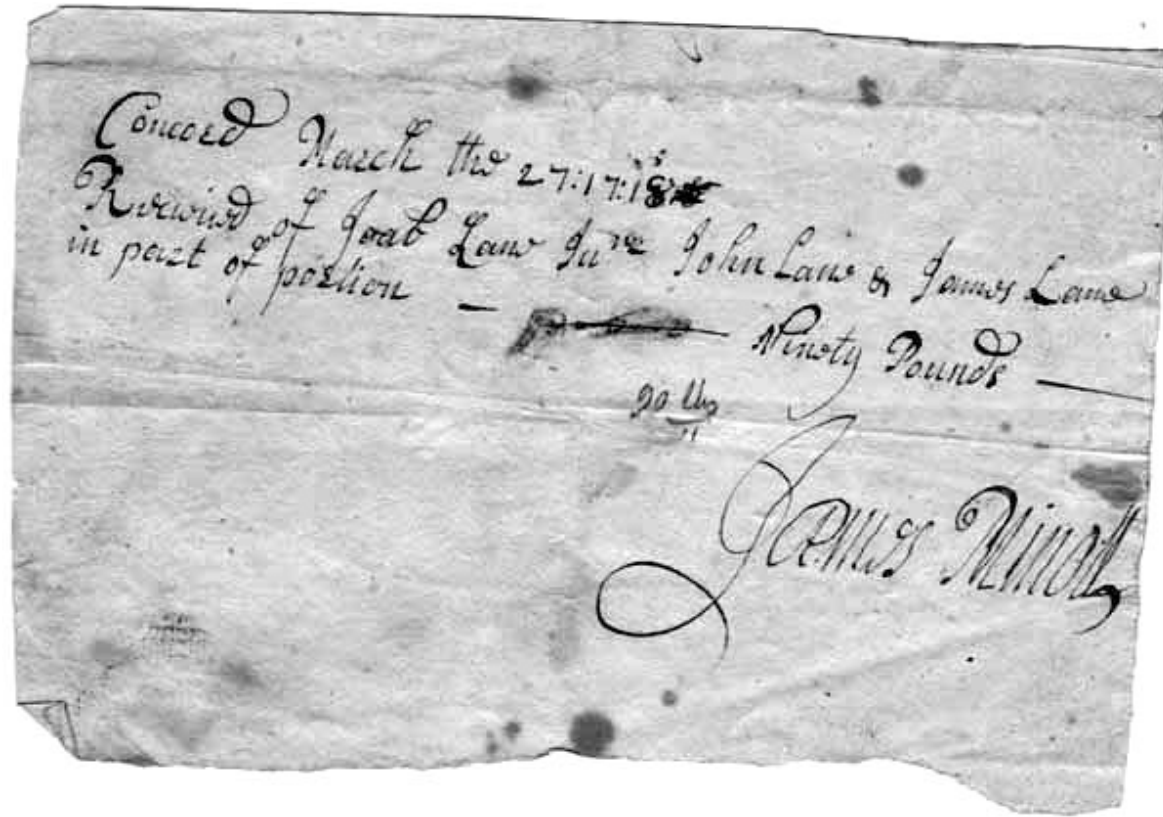 Concord March the 27:17:18
Received of Joab Lane Junr John Lane & James Lane
in part of portion — Ninety Pounds —
90 lbs
James Minott